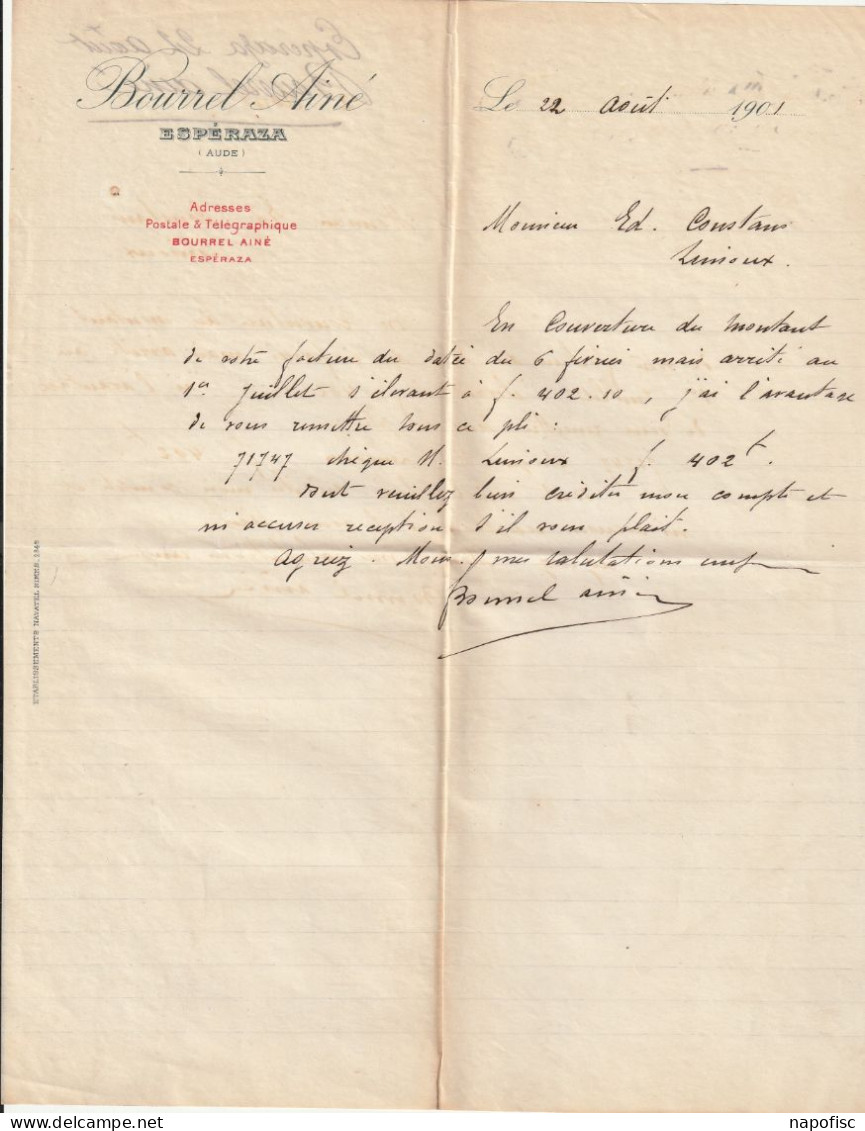 Bourrel Ainé
ESPÉRAZA
( AUDE )
Le 22 août 1901
Adresses
Postale & Télégraphique
BOURREL AINÉ
ESPÉRAZA
Monsieur Ed. Constans
Limoux.
En couverture du montant
de votre facture du datée du 6 février mais arrêté au
1er Juillet s'élevant à f. 402.10, j'ai l'avantage
de vous remettre sous ce pli :
71747 chèque N. Limoux f. 402 f.
dont veuillez bien créditer mon compte et
m'accuser reception s'il vous plait.
Agréez. Mons. mes salutations
Bourrel ainé
ETABLISSEMENTS NAVATEL NIMES.
napofisc